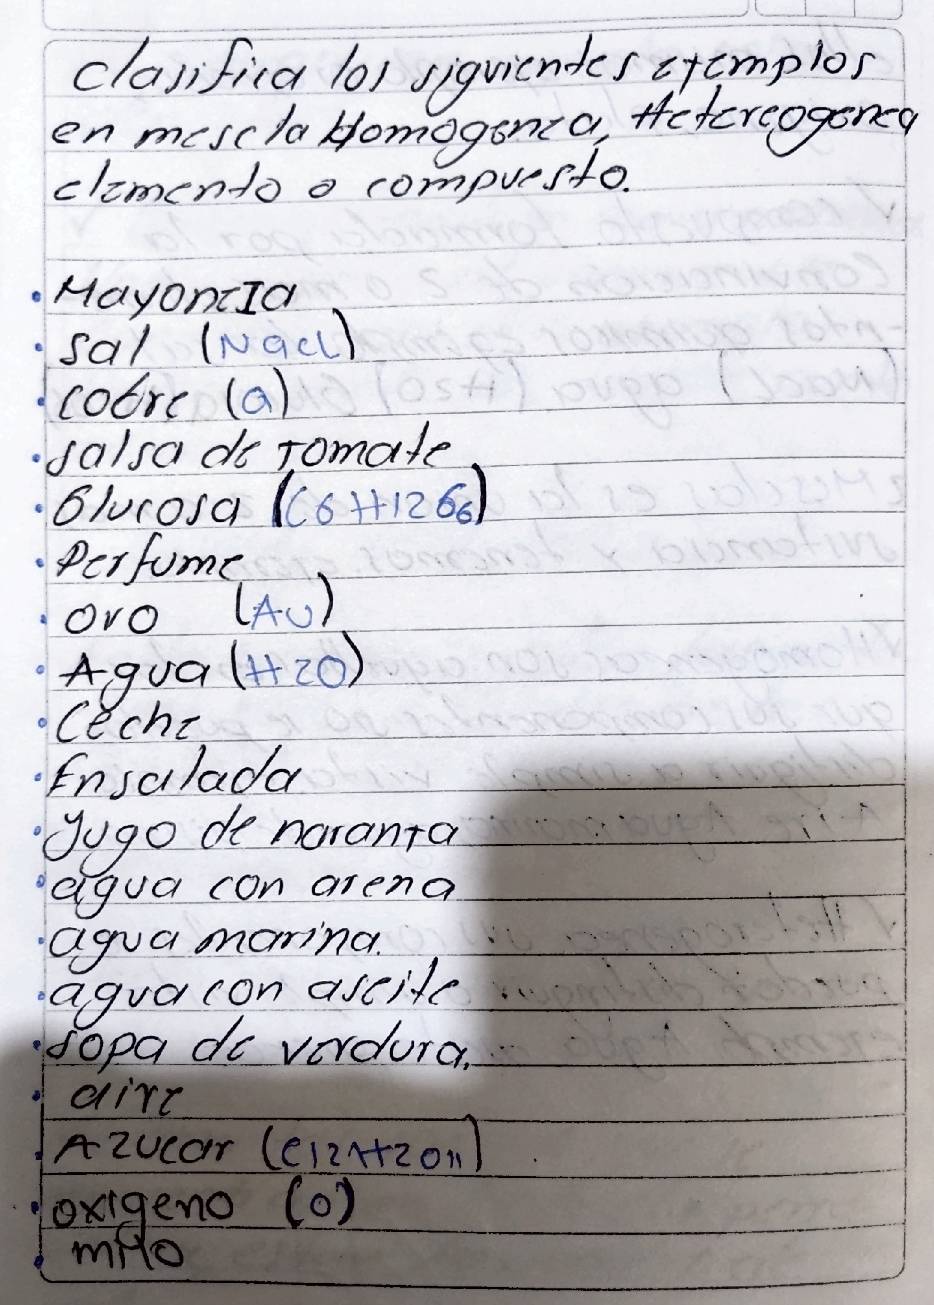 clasifica los siguientes ejemplos
en mescla Homogenea, Hetereogenea
elemento o compuesto.
• Mayonesa
• sal (Nacl)
• cobre (a)
• salsa de tomate
• Glucosa (C6H1266)
• Perfume
• oro (Au)
• Agua (H2O)
• Leche
• Ensalada
• Jugo de naranja
• agua con arena
• agua marina.
• agua con aseite
• sopa de verdura.
• aire
• Azucar (C12H2O11)
• oxigeno (O)